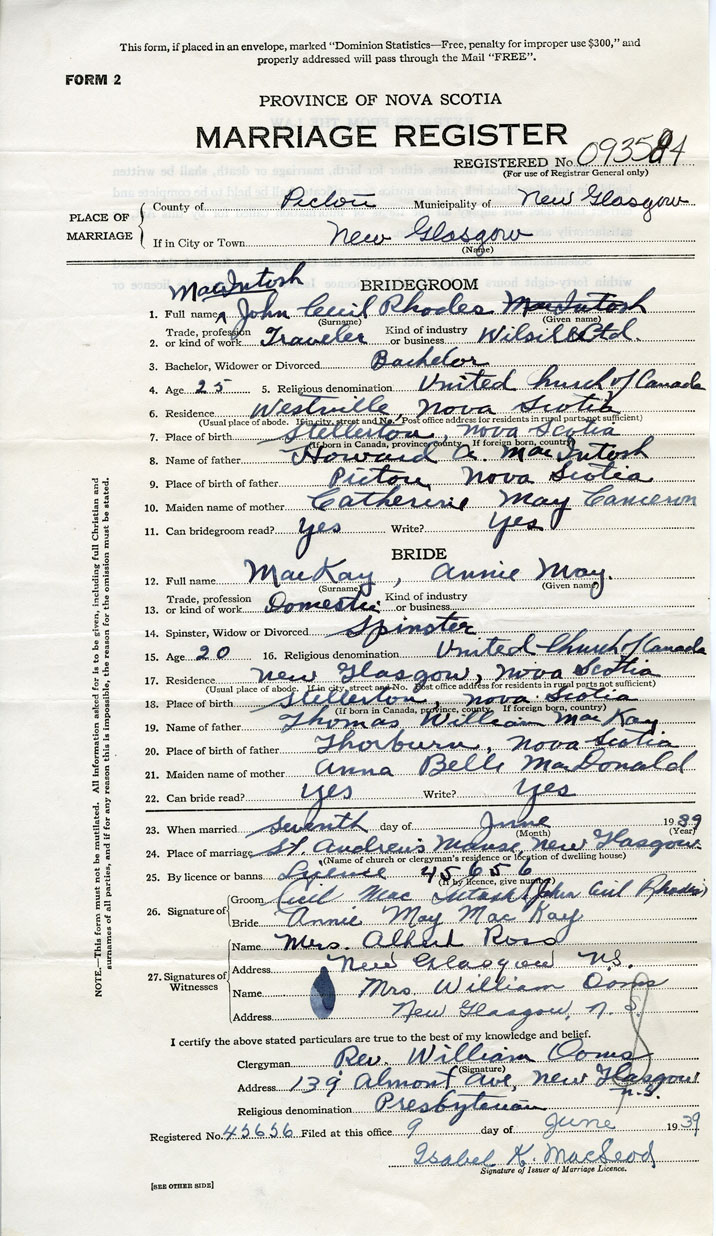 This form, if placed in an envelope, marked "Dominion Statistics—Free, penalty for improper use $300," and
properly addressed will pass through the Mail "FREE".
FORM 2
PROVINCE OF NOVA SCOTIA
MARRIAGE REGISTER
REGISTERED No. 093584
(For use of Registrar General only)
PLACE OF MARRIAGE
County of Pictou Municipality of New Glasgow
If in City or Town New Glasgow
(Name)
MacIntosh
BRIDEGROOM
1. Full name John Cecil Rhodes MacIntosh
(Surname) (Given name)
2. Trade, profession or kind of work Traveler Kind of industry or business Wilsil Ltd.
3. Bachelor, Widower or Divorced Bachelor
4. Age 25 5. Religious denomination United Church of Canada
6. Residence Westville, Nova Scotia
(Usual place of abode. If in city, street and No. Post office address for residents in rural parts not sufficient)
7. Place of birth Stellerton, Nova Scotia
(If born in Canada, province, county. If foreign born, country)
8. Name of father Howard A. MacIntosh
9. Place of birth of father Pictou Nova Scotia
10. Maiden name of mother Catherine May Cameron
11. Can bridegroom read? Yes Write? Yes
BRIDE
12. Full name MacKay, Annie May.
(Surname) (Given name)
13. Trade, profession or kind of work Domestic Kind of industry or business
14. Spinster, Widow or Divorced Spinster
15. Age 20 16. Religious denomination United Church of Canada
17. Residence New Glasgow, Nova Scotia
(Usual place of abode. If in city, street and No. Post office address for residents in rural parts not sufficient)
18. Place of birth Stellerton, Nova Scotia
(If born in Canada, province, county. If foreign born, country)
19. Name of father Thomas William MacKay
20. Place of birth of father Thorburn, Nova Scotia
21. Maiden name of mother Anna Belle MacDonald
22. Can bride read? Yes Write? Yes
23. When married Seventh day of June 1939
(Month) (Year)
24. Place of marriage St. Andrew's Manse, New Glasgow
(Name of church or clergyman's residence or location of dwelling house)
25. By licence or banns Licence 45656
(If by licence, give number)
26. Signature of
Groom Cecil MacIntosh (John Cecil Rhodes)
Bride Annie May MacKay
27. Signatures of Witnesses
Name Mrs. Albert Ross
Address New Glasgow N.S.
Name Mrs. William Ooms
Address New Glasgow, N.S.
I certify the above stated particulars are true to the best of my knowledge and belief.
Clergyman Rev. William Ooms
(Signature)
Address 139 Almont Ave, New Glasgow
N.S.
Religious denomination Presbyterian
Registered No. 45656 Filed at this office 9 day of June 1939
Isabel K. MacLeod
Signature of Issuer of Marriage Licence.
[SEE OTHER SIDE]
NOTE.—This form must not be mutilated. All information asked for is to be given, including full Christian and
surnames of all parties, and if for any reason this is impossible, the reason for the omission must be stated.